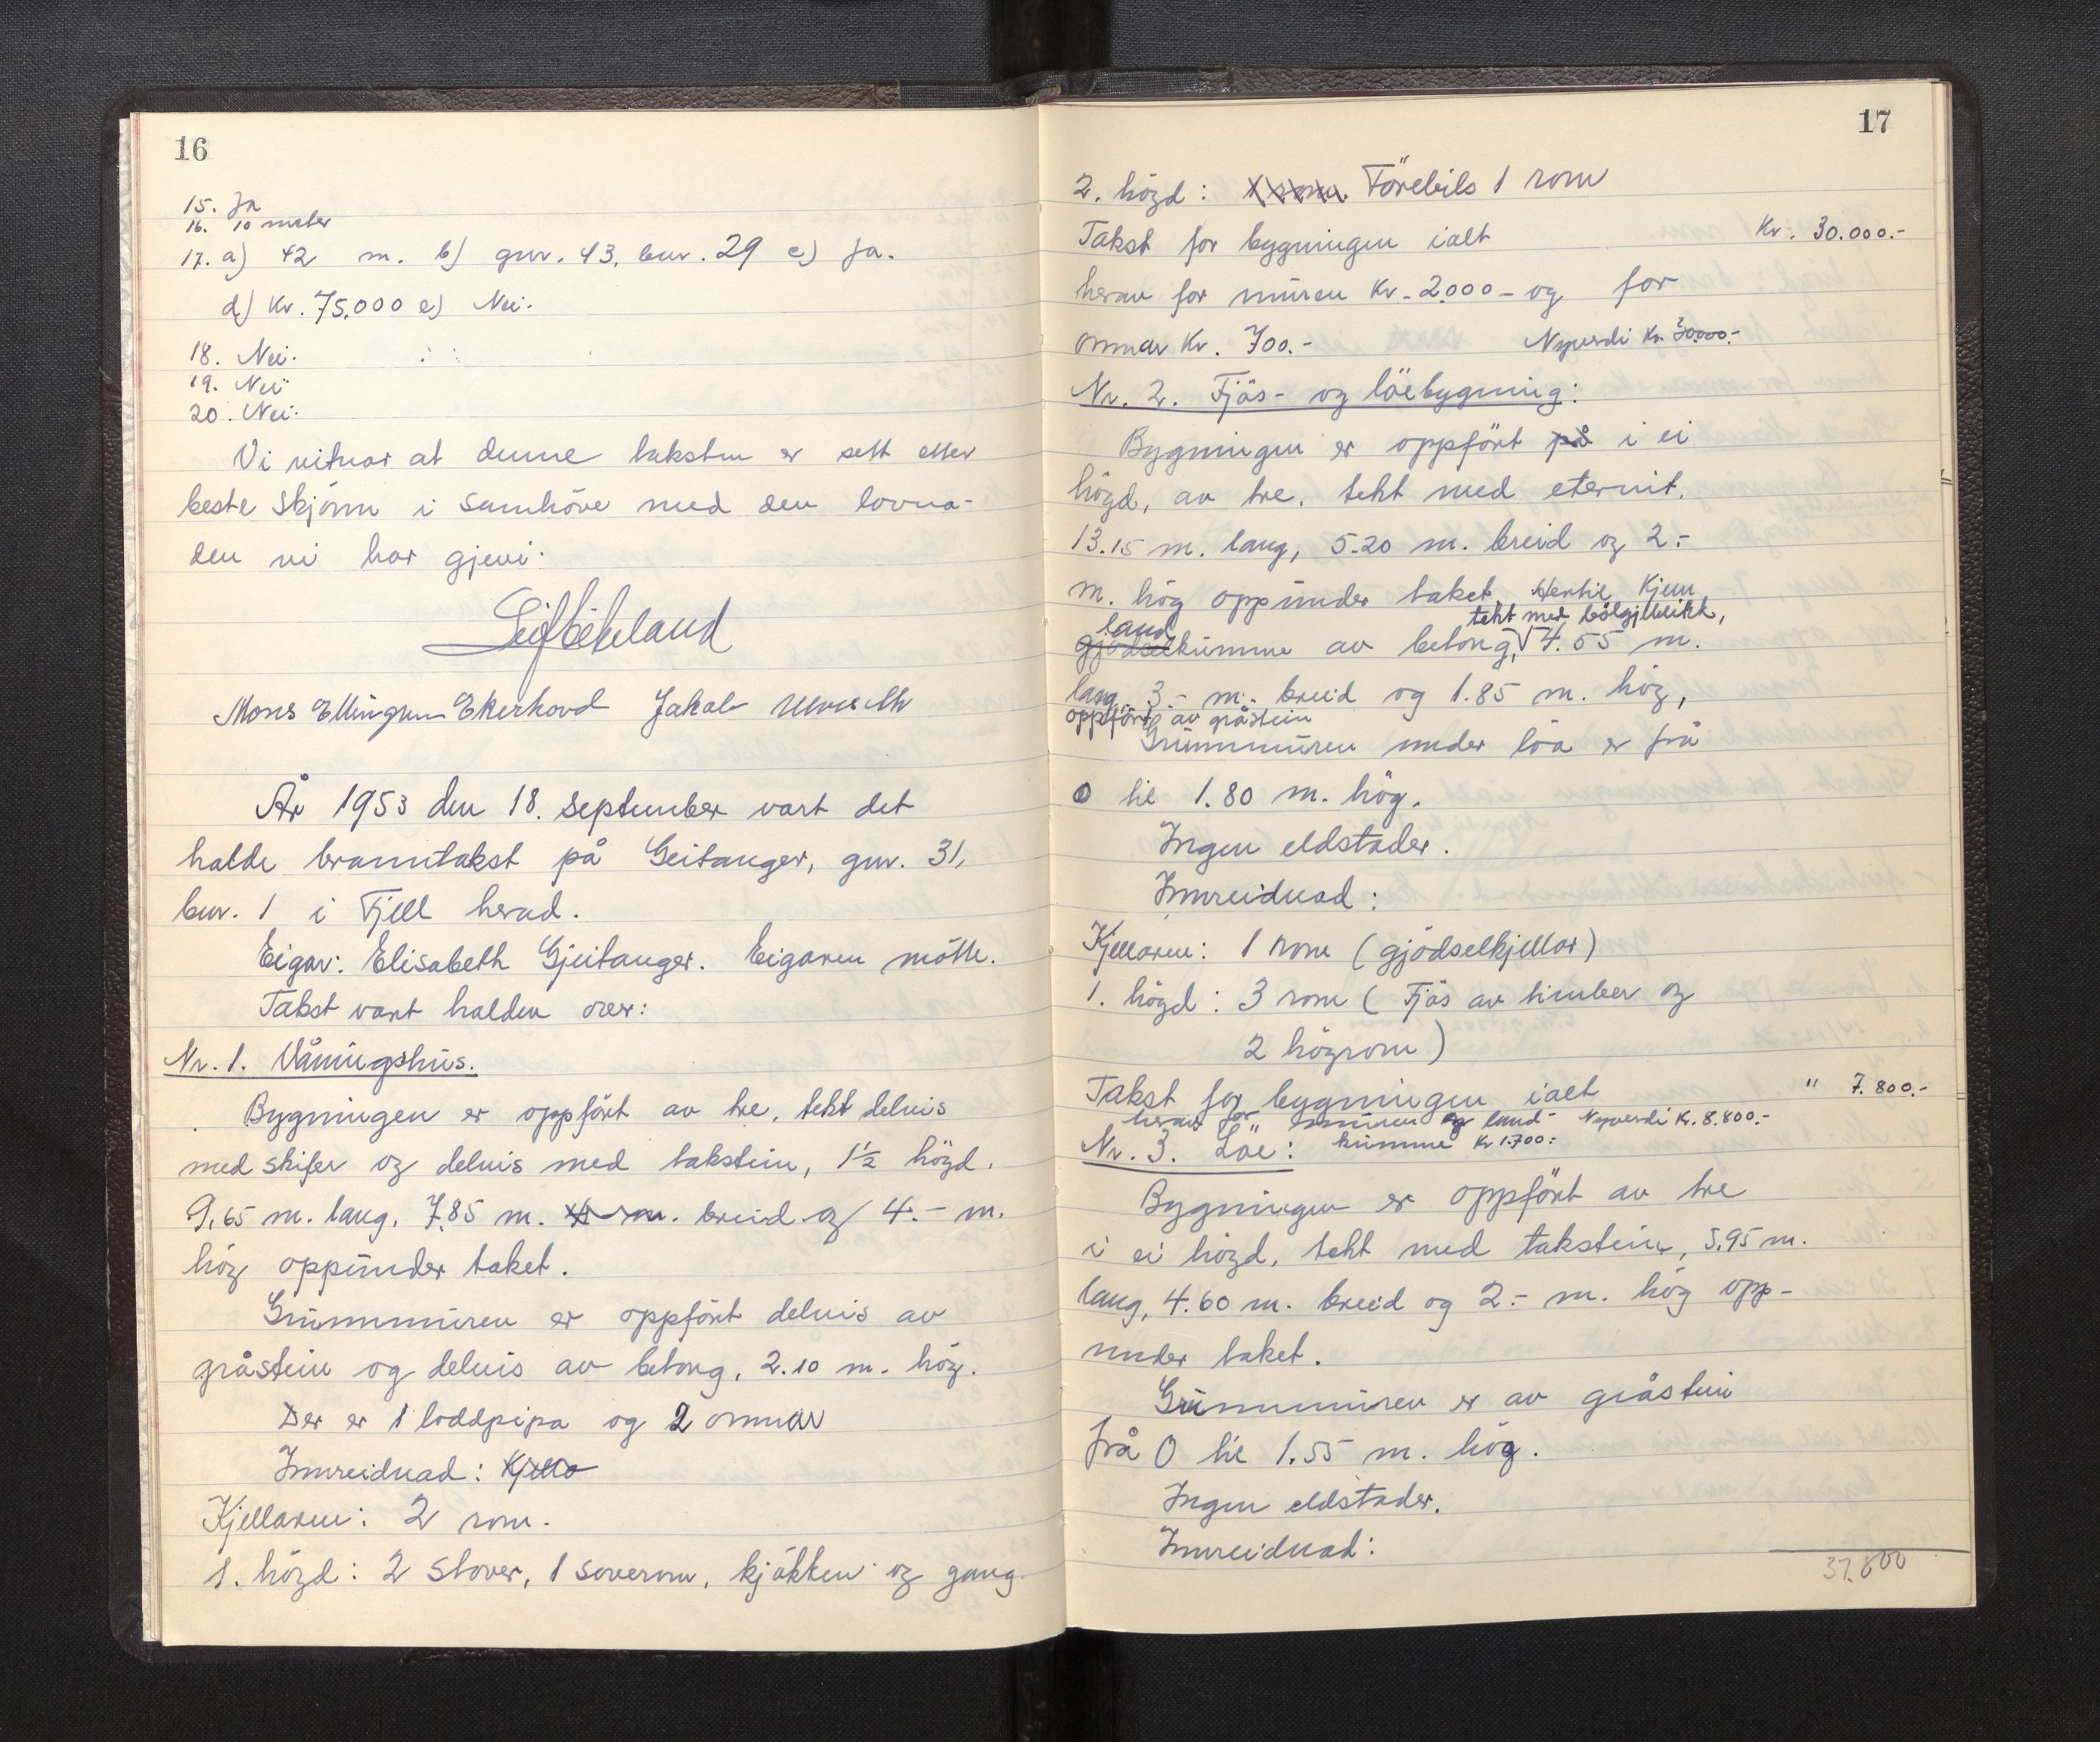 16
15. Ja
16. 10 meter
17. a) 42 m. b) gnr. 43, bnr. 29 c) Ja.
d) Kr. 75.000 e) Nei.
18. Nei.
19. Nei
20. Nei.
Vi vitnar at denne taksten er sett etter
beste skjönn i samhöve med den lovna-
den vi har gjevi.
Mons Ellingsen Ekerhovd Jakob
År 1953 den 18. september vart det
halde branntakst på Geitanger, gnr. 31,
bnr. 1 i Fjell herad.
Eigar: Elisabeth Gjeitanger. Eigaren mötte.
Takst vart halden over:
Nr. 1. Våningshus.
Bygningen er oppfört av tre, tekt delvis
med skifer og delvis med takstein, 1½ högd.
9.65 m. lang, 7.85 m. breid og 4.- m.
hög oppunder taket.
Grunnmuren er oppfört delvis av
gråstein og delvis av betong, 2.10 m. hög.
Der er 1 loddpipa og 2 omnar
Innreidnad: Kjella
Kjellaren: 2 rom.
1. högd: 2 stover, 1 soverom, kjökken og gang
17
2. högd: 1 rom. Förebils 1 rom
Takst for bygningen ialt Kr. 30.000.-
herav for muren Kr. 2.000 - og for
omnar Kr. 700.- Nyverdi Kr. 30000.-
Nr. 2. Fjös- og löebygning:
Bygningen er oppfört på i ei
högd, av tre, tekt med eternit.
13.15 m. lang, 5.20 m. breid og 2.-
m. hög oppunder taket. Hertil kjem
tekt med bölgjeblikk,
land
gjödselkumme av betong, 4.55 m.
lang, 3.- m. breid og 1.85 m. hög,
oppfört av gråstein
Grunnmuren under löa er frå
0 til 1.80 m. hög.
Ingen eldstader.
Innreidnad:
Kjellaren: 1 rom (gjödselkjellar)
1. högd: 3 rom (Fjös av timber og
2 högrom)
Takst for bygningen ialt " 7.800.-
herav for muren og land- Nyverdi Kr. 8.800.-
kumme Kr 1.700:
Nr. 3. Löe:
Bygningen er oppfört av tre
i ei högd, tekt med takstein, 5.95 m.
lang, 4.60 m. breid og 2.- m. hög opp-
under taket.
Grunnmuren er av gråstein
frå 0 til 1.55 m. hög.
Ingen eldstader.
Innreidnad:
37.800